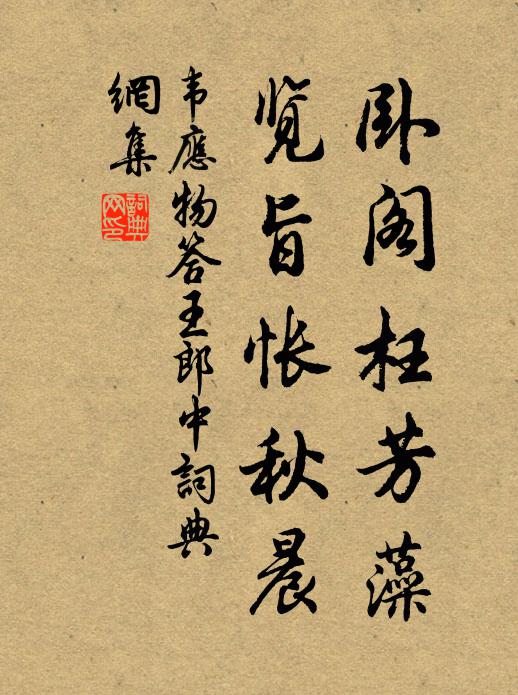 卧阁枉芳藻
览旨怅秋晨
韦應物答王郎中詞典
網集
詞典网印